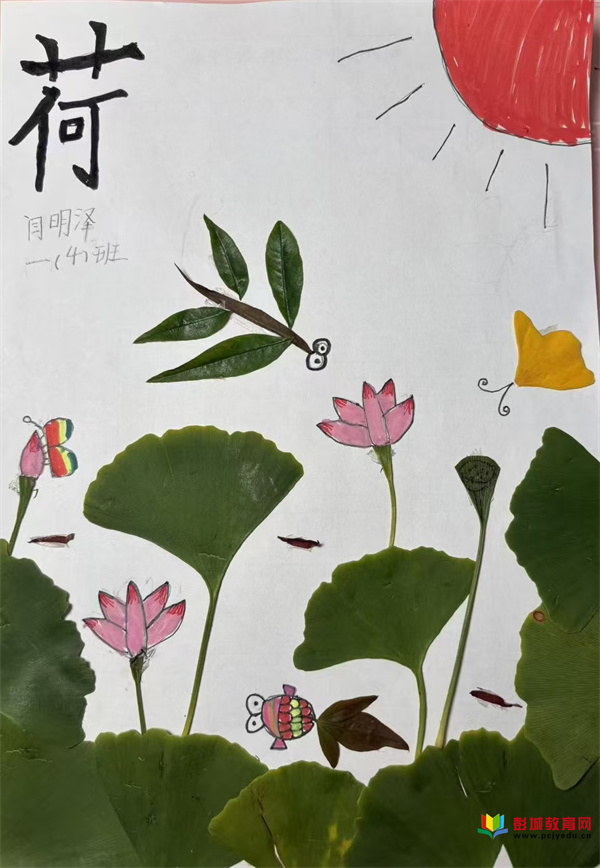 荷
闫明泽
一(4)班
彭城教育网
www.pcjyedu.cn